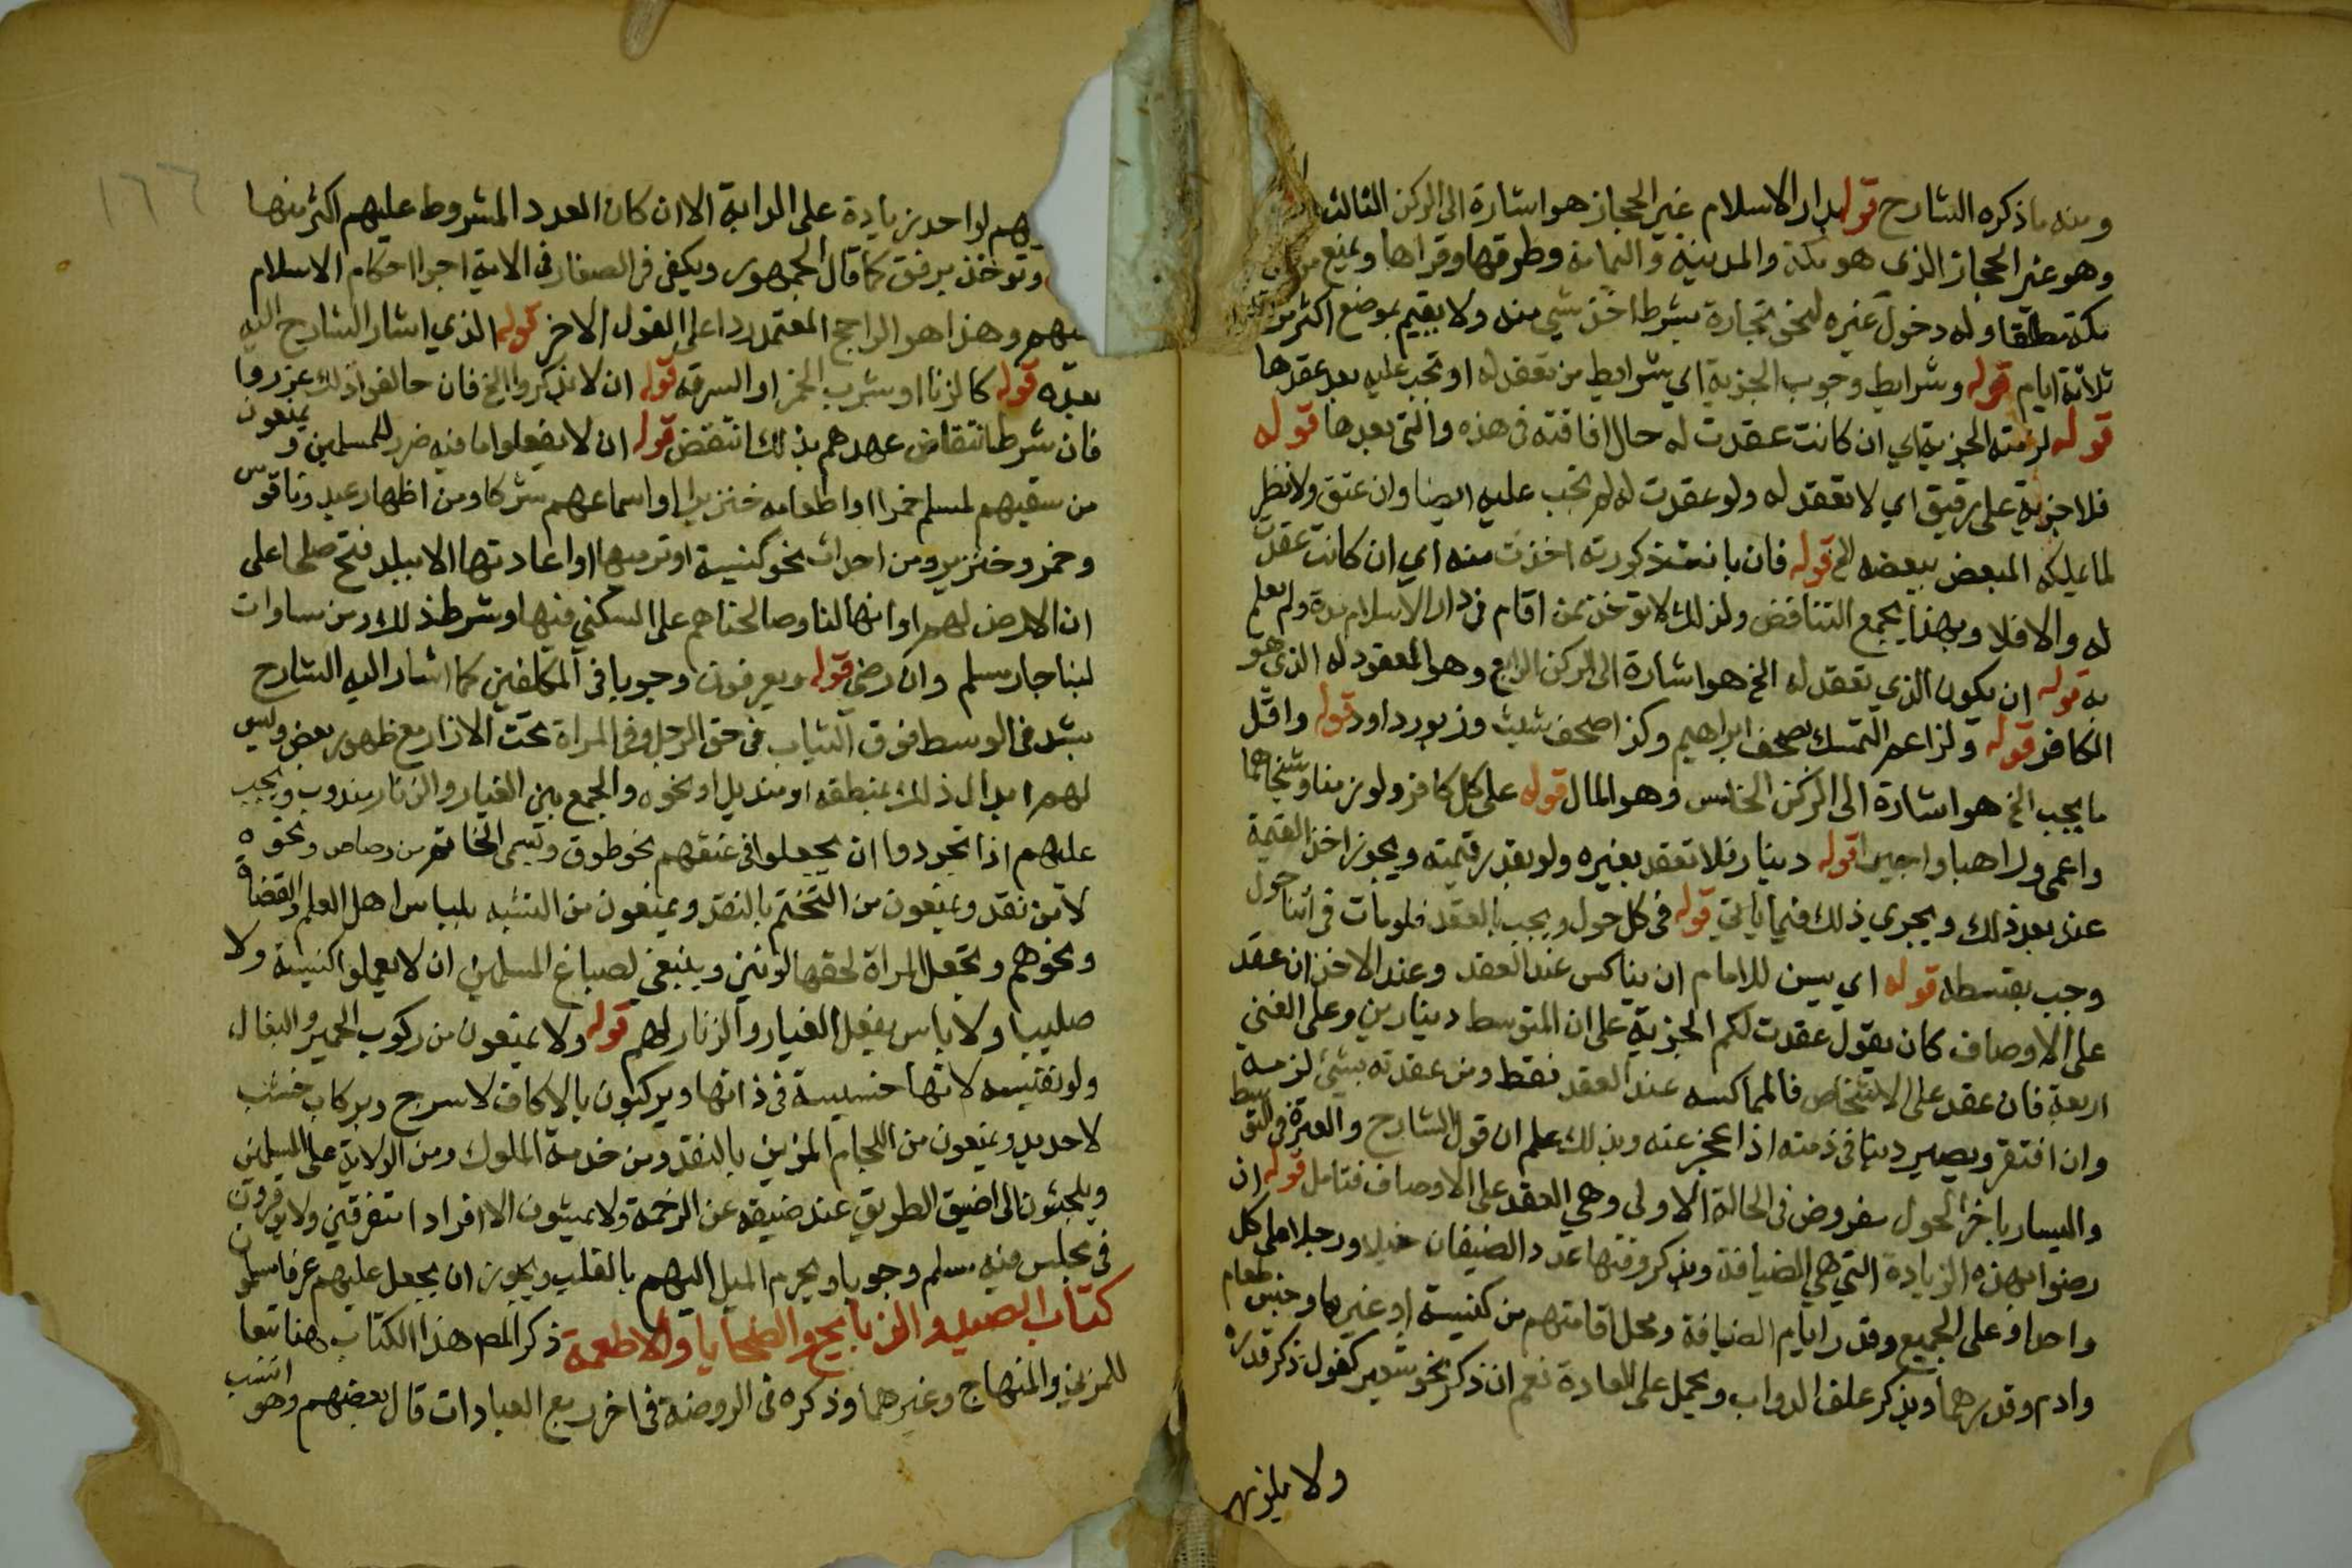 ومنه ما ذكره الشارح قوله بدار الاسلام غير الحجاز هو اشارة الى الركن الثالث
وهو غير الحجاز الذي هو مكة والمدينة واليمامة وطرقها وقراها ويمنع من
مكة مطلقا وله دخول غيره لنحو تجارة بشرط اخذ شي منه ولا يقيم بموضع اكثر من
ثلاثة ايام قوله وشرايط وجوب الجزية اي شرايط من تعقد له او تجب عليه بعد عقدها
قوله لزمته الجزية اي ان كانت عقدت له حال افاقته في هذه والتي بعدها قوله
فلا جزية على رقيق اي لا تعقد له ولو عقدت له لم تجب عليه ايضا وان عتق ولا نظر
لما يملكه المبعض ببعضه الخ قوله فان بانت ذكورته اخذت منه اي ان كانت عقدت
له والا فلا وبهذا يجمع التناقض ولذلك لا توخذ ممن اقام في دار الاسلام مدة ولم يعلم
به قوله ان يكون الذي تعقد له الخ هو اشارة الى الركن الرابع وهو المعقود له الذي هو
الكافر قوله ولزاعم التمسك بصحف ابراهيم وكذا صحف شيث وزبور داود قوله واقل
ما يجب الخ هو اشارة الى الركن الخامس وهو المال قوله على كل كافر ولو زمنا وشيخا هما
واعمى وراهبا واجيرا قوله دينار فلا تعقد بغيره ولو بقدر قيمته ويجوز اخذ القيمة
عند بعد ذلك ويجري ذلك فيما ياتي قوله في كل حول ويجب بالعقد فلو مات في اثنا حول
وجب بقسطه قوله اي يسن للامام ان يماكس عند العقد وعند الاخذ ان عقد
على الاوصاف كان يقول عقدت لكم الجزية على ان المتوسط دينارين وعلى الغني
اربعة فان عقد على الاشخاص فالمماكسه عند العقد فقط ومن عقدته بشي لزمه
وان افتقر ويصير دينا في ذمته اذا عجز عنه وبذلك علم ان قول الشارح والعبرة في التوسط
واليسار باخر الحول مفروض في الحالة الاولى وهي العقد على الاوصاف فتامل قوله ان
رضوا بهذه الزيادة التي هي الضيافة ويذكر وقتها عدد الضيفان خيلا ورجلا على كل
واحد او على الجميع وقدر ايام الضيافة ومحل اقامتهم من كنيسة او غيرها وجنس طعام
وادم وقدرهما ويذكر علف الدواب ويحمل على العادة نعم ان ذكر نحو شعير كفول ذكر قدره
ولا يلزمهم
هم لواحد زيادة على الدابة الا ان كان العدد المشروط عليهم اكثر منها
وتوخذ برفق كما قال الجمهور ويكفي في الصغار في الاية اجرا احكام الاسلام
وهذا هو الراجح المعتمد ردا على القول الاخر قوله الذي اشار الشارح اليه
بعده قوله كالزنا او شرب الخمر او السرقه قوله ان لا يذكروا الخ فان خالفوا ذلك عزروا
فان شرط انتقاض عهدهم بذلك انتقض قوله ان لا يفعلوا ما فيه ضرر للمسلمين ويمنعون
من سقيهم لمسلم خمرا او اطعامه خنزيرا او اسماعهم شركا ومن اظهار عيد وناقوس
وخمر وخنزير ومن احداث نحو كنيسة او ترميمها او اعادتها الا ببلد فتح صلحا على
ان الارض لهم او انها لنا وصالحناهم على السكنى فيها وشرط ذلك ومن مساوات
لبنا جار مسلم وان رضي قوله ويعرفون وجوبا في المكلفين كما اشار اليه الشارح
بشد في الوسط فوق الثياب في حق الرجل وفي المراة تحت الازار مع ظهور بعض وليس
لهم ابدال ذلك بمنطقة او منديل او نحوه والجمع بين الغيار والزنار مندوب ويجب
عليهم اذا تجردوا ان يجعلوا في عنقهم نحو طوق وتسمى الخاتم من رصاص ونحوه
لا من نقد ويمنعون من التختم بالنقد ويمنعون من التشبه بلباس اهل العلم والقضاة
ونحوهم وتجعل المراة لخفها لونين وينبغي لصباغ المسلمين ان لا يعملوا كنيسة ولا
صليبا ولا باس بفعل الغيار والزنار لهم قوله ولا يمنعون من ركوب الحمير والبغال
ولو نفيسه لانها خسيسة في ذاتها ويركبون بالاكاف لا سرج وبركاب خشب
لا حديد ويمنعون من اللجام المزين بالنقد ومن خدمة الملوك ومن الولاية على المسلمين
ويلجئون الى اضيق الطريق عند ضيقه عن الزحمة ولا يمشون الا افرادا متفرقين ولا يوقرون
في مجلس فيه مسلم وجوبا ويحرم الميل اليهم بالقلب ويجوز ان يجعل عليهم عرفا مسلمون
كتاب الصيد والذبايح والضحايا والاطعمة ذكر المص هذا الكتاب هنا تبعا
للمزني والمنهاج وغيرهما وذكره في الروضة في اخر ربع العبادات قال بعضهم وهو انسب
١٦٦